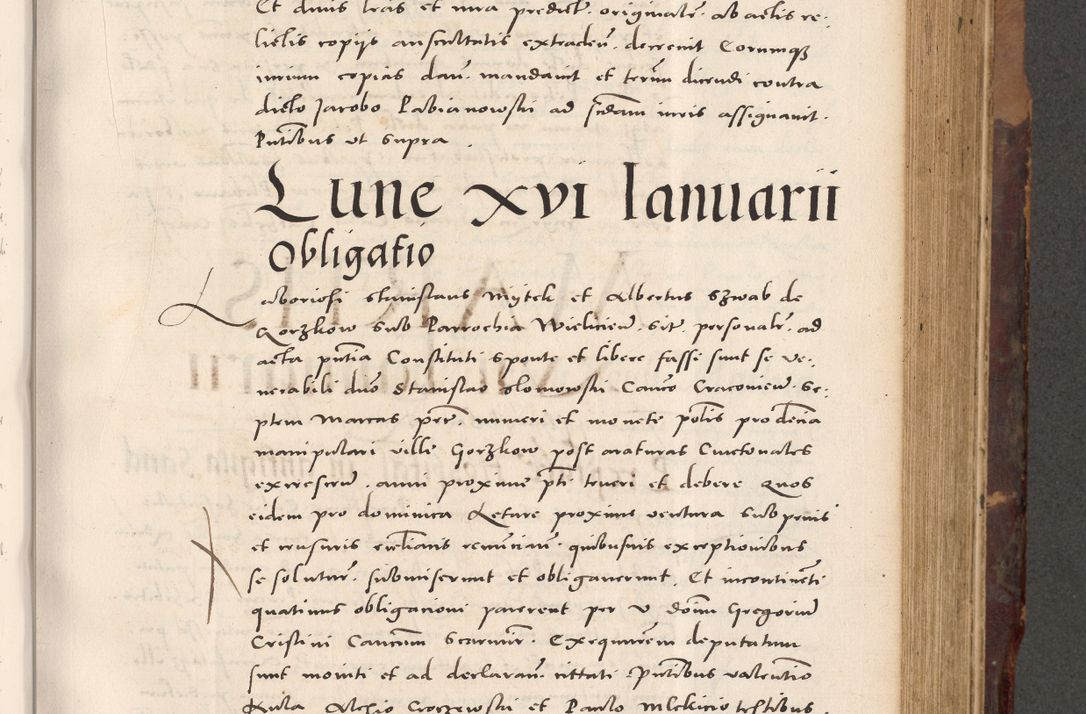 Et dmis lrās et mra predictʳ. originalr̄. ab actis re-
lictis copijs auscultatis extraden̄. decrevit Eorumqз
jurium copias dan̄. mandavit et term̄ dicendi contra
dicto Jacobo Pabianowski ad sc̄dam iuris assignavit.
Pn̄tibus ut supra.
Lune xvi Ianuarii
Obligatio
Laboriosi Stanislaus Mijtek et Albertus Szwab de
Gorzkow sub Parrochia Wielicien̄. sitr̄. personalr̄. ad
acta pn̄tia Constituti sponte et libere fassi sunt se ve-
nerabili dn̄o Stanislao Slomowski Can̄co Cracovien̄. se-
ptem Marcas per̄. numeri et monete pol̄is pro decīa
manipulari ville Gorzkow post araturas Cmetonales
excrescen̄. anni proxime pt̄i teneri et debere Quos
eidem pro dominica Letare proxime ventura sub penis
et censuris eccl̄iasticis renuncian̄. quibusvis exceptionibus
se soluturr̄. submiserunt et obligaverunt. Et incontinēti
quatinus obligacioni parerent per V. dom̄ Gregoriū
Cristini Canc̄um Scarmir̄. Exequutorem̄ deputatum
sunt moniti et ad declaran̄. cittati Pn̄tibus valentīo
Kula Alexio Gorzewski et Paulo Mlekicio testibus.